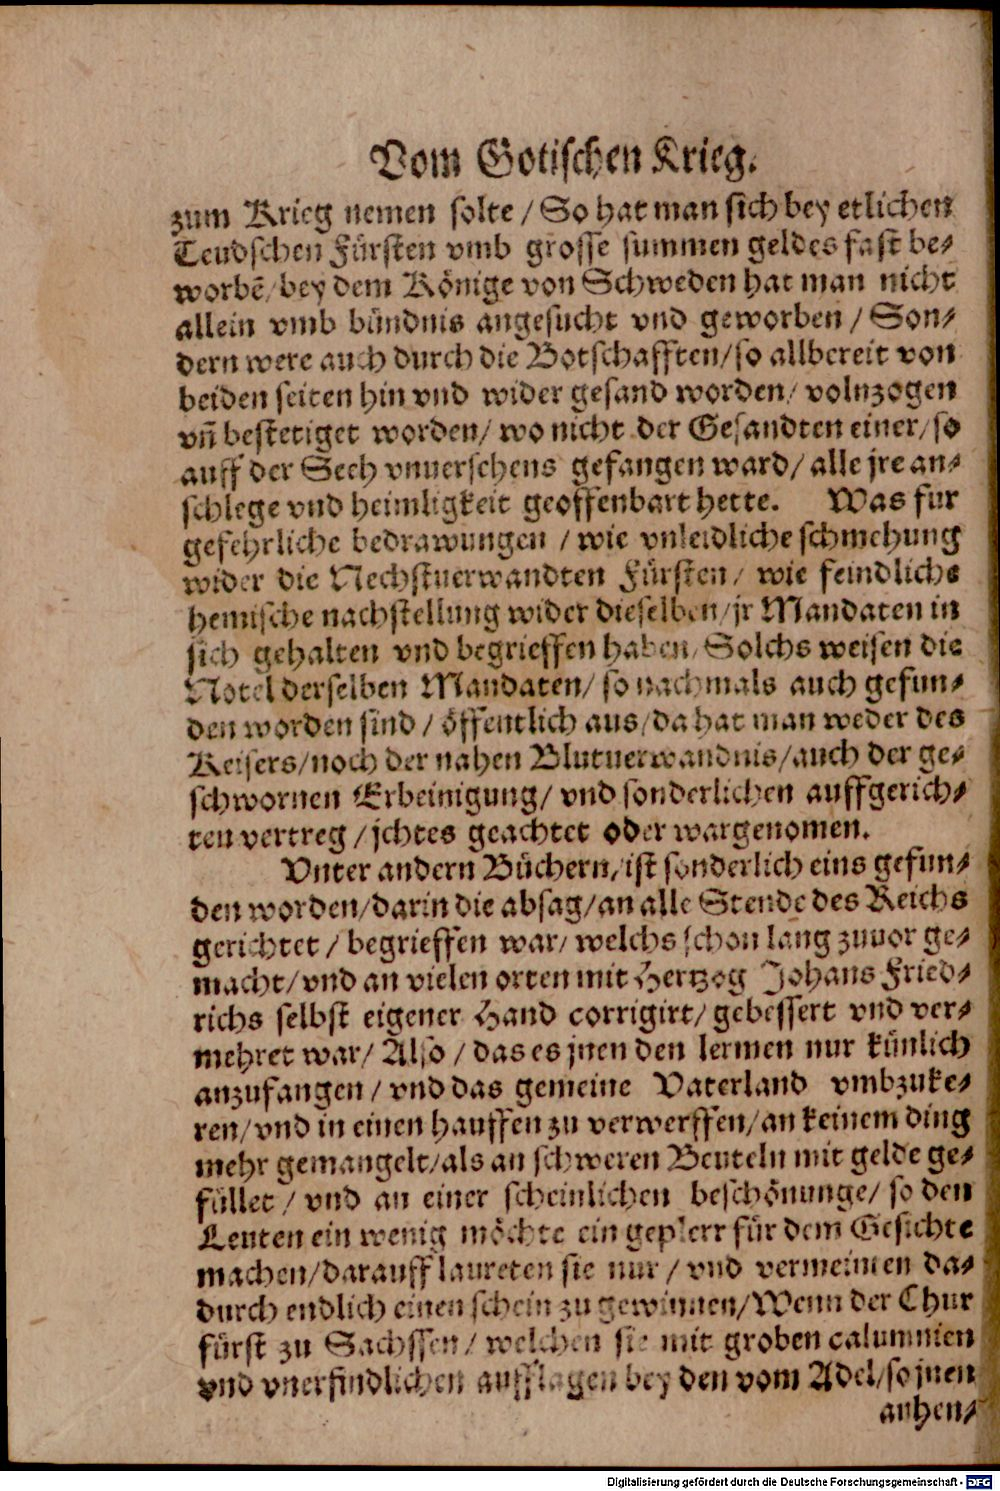 Vom Gotischen Krieg.
zum Krieg nemen solte / So hat man sich bey etlichen
Teudschen Fürsten vmb grosse summen geldes fast be-
worbē / bey dem Könige von Schweden hat man nicht
allein vmb bündnis angesucht vnd geworben / Son-
dern were auch durch die Botschafften / so allbereit von
beiden seiten hin vnd wider gesand worden / volnzogen
vñ bestetiget worden / wo nicht der Gesandten einer / so
auff der Seeh vnuersehens gefangen ward / alle jre an-
schlege vnd heimligkeit geoffenbart hette. Was fur
gefehrliche bedrawungen / wie vnleidliche schmehung
wider die Nechstuerwandten Fürsten / wie feindliche
hemische nachstellung wider dieselben / jr Mandaten in
sich gehalten vnd begrieffen haben / Solchs weisen die
Notel derselben Mandaten / so nachmals auch gefun-
den worden sind / öffentlich aus / da hat man weder des
Keisers / noch der nahen Blutuerwandnis / auch der ge-
schwornen Erbeinigung / vnd sonderlichen auffgerich-
ten vertreg / jchtes geachtet oder wargenomen.
Vnter andern Büchern / ist sonderlich eins gefun-
den worden / darin die absag / an alle Stende des Reichs
gerichtet / begrieffen war / welchs schon lang zuuor ge-
macht / vnd an vielen orten mit Hertzog Johans Fried-
richs selbst eigener Hand corrigirt / gebessert vnd ver-
mehret war / Also / das es jnen den lermen nur künlich
anzufangen / vnd das gemeine Vaterland vmbzuke-
ren / vnd in einen hauffen zu verwerffen / an keinem ding
mehr gemangelt / als an schweren Beuteln mit gelde ge-
füllet / vnd an einer scheinlichen beschönunge / so den
Leuten ein wenig möchte ein geplerr für dem Gesichte
machen / darauff laureten sie nur / vnd vermeinten da-
durch endlich einen schein zu gewinnen / Wenn der Chur
fürst zu Sachssen / welchen sie mit groben calumnien
vnd vnerfindlichen aufflagen bey den vom Adel / so jnen
anhen-
Digitalisierung gefördert durch die Deutsche Forschungsgemeinschaft - DFG